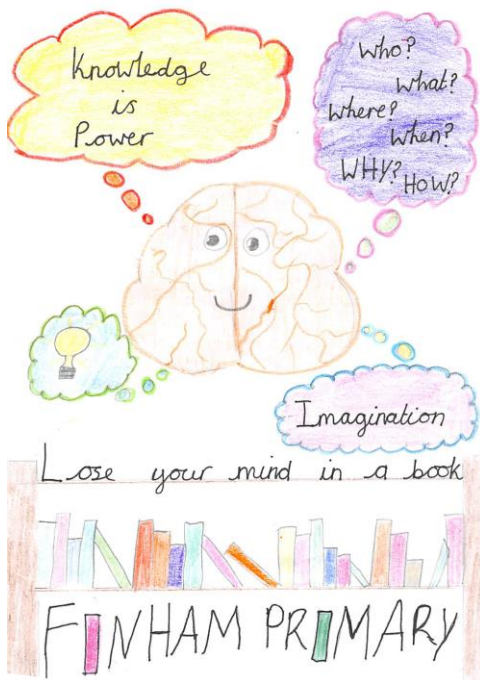 Knowledge
is
Power
Who?
What?
Where?
When?
WHY?
HOW?
Imagination
Lose your mind in a book
FINHAM PRIMARY